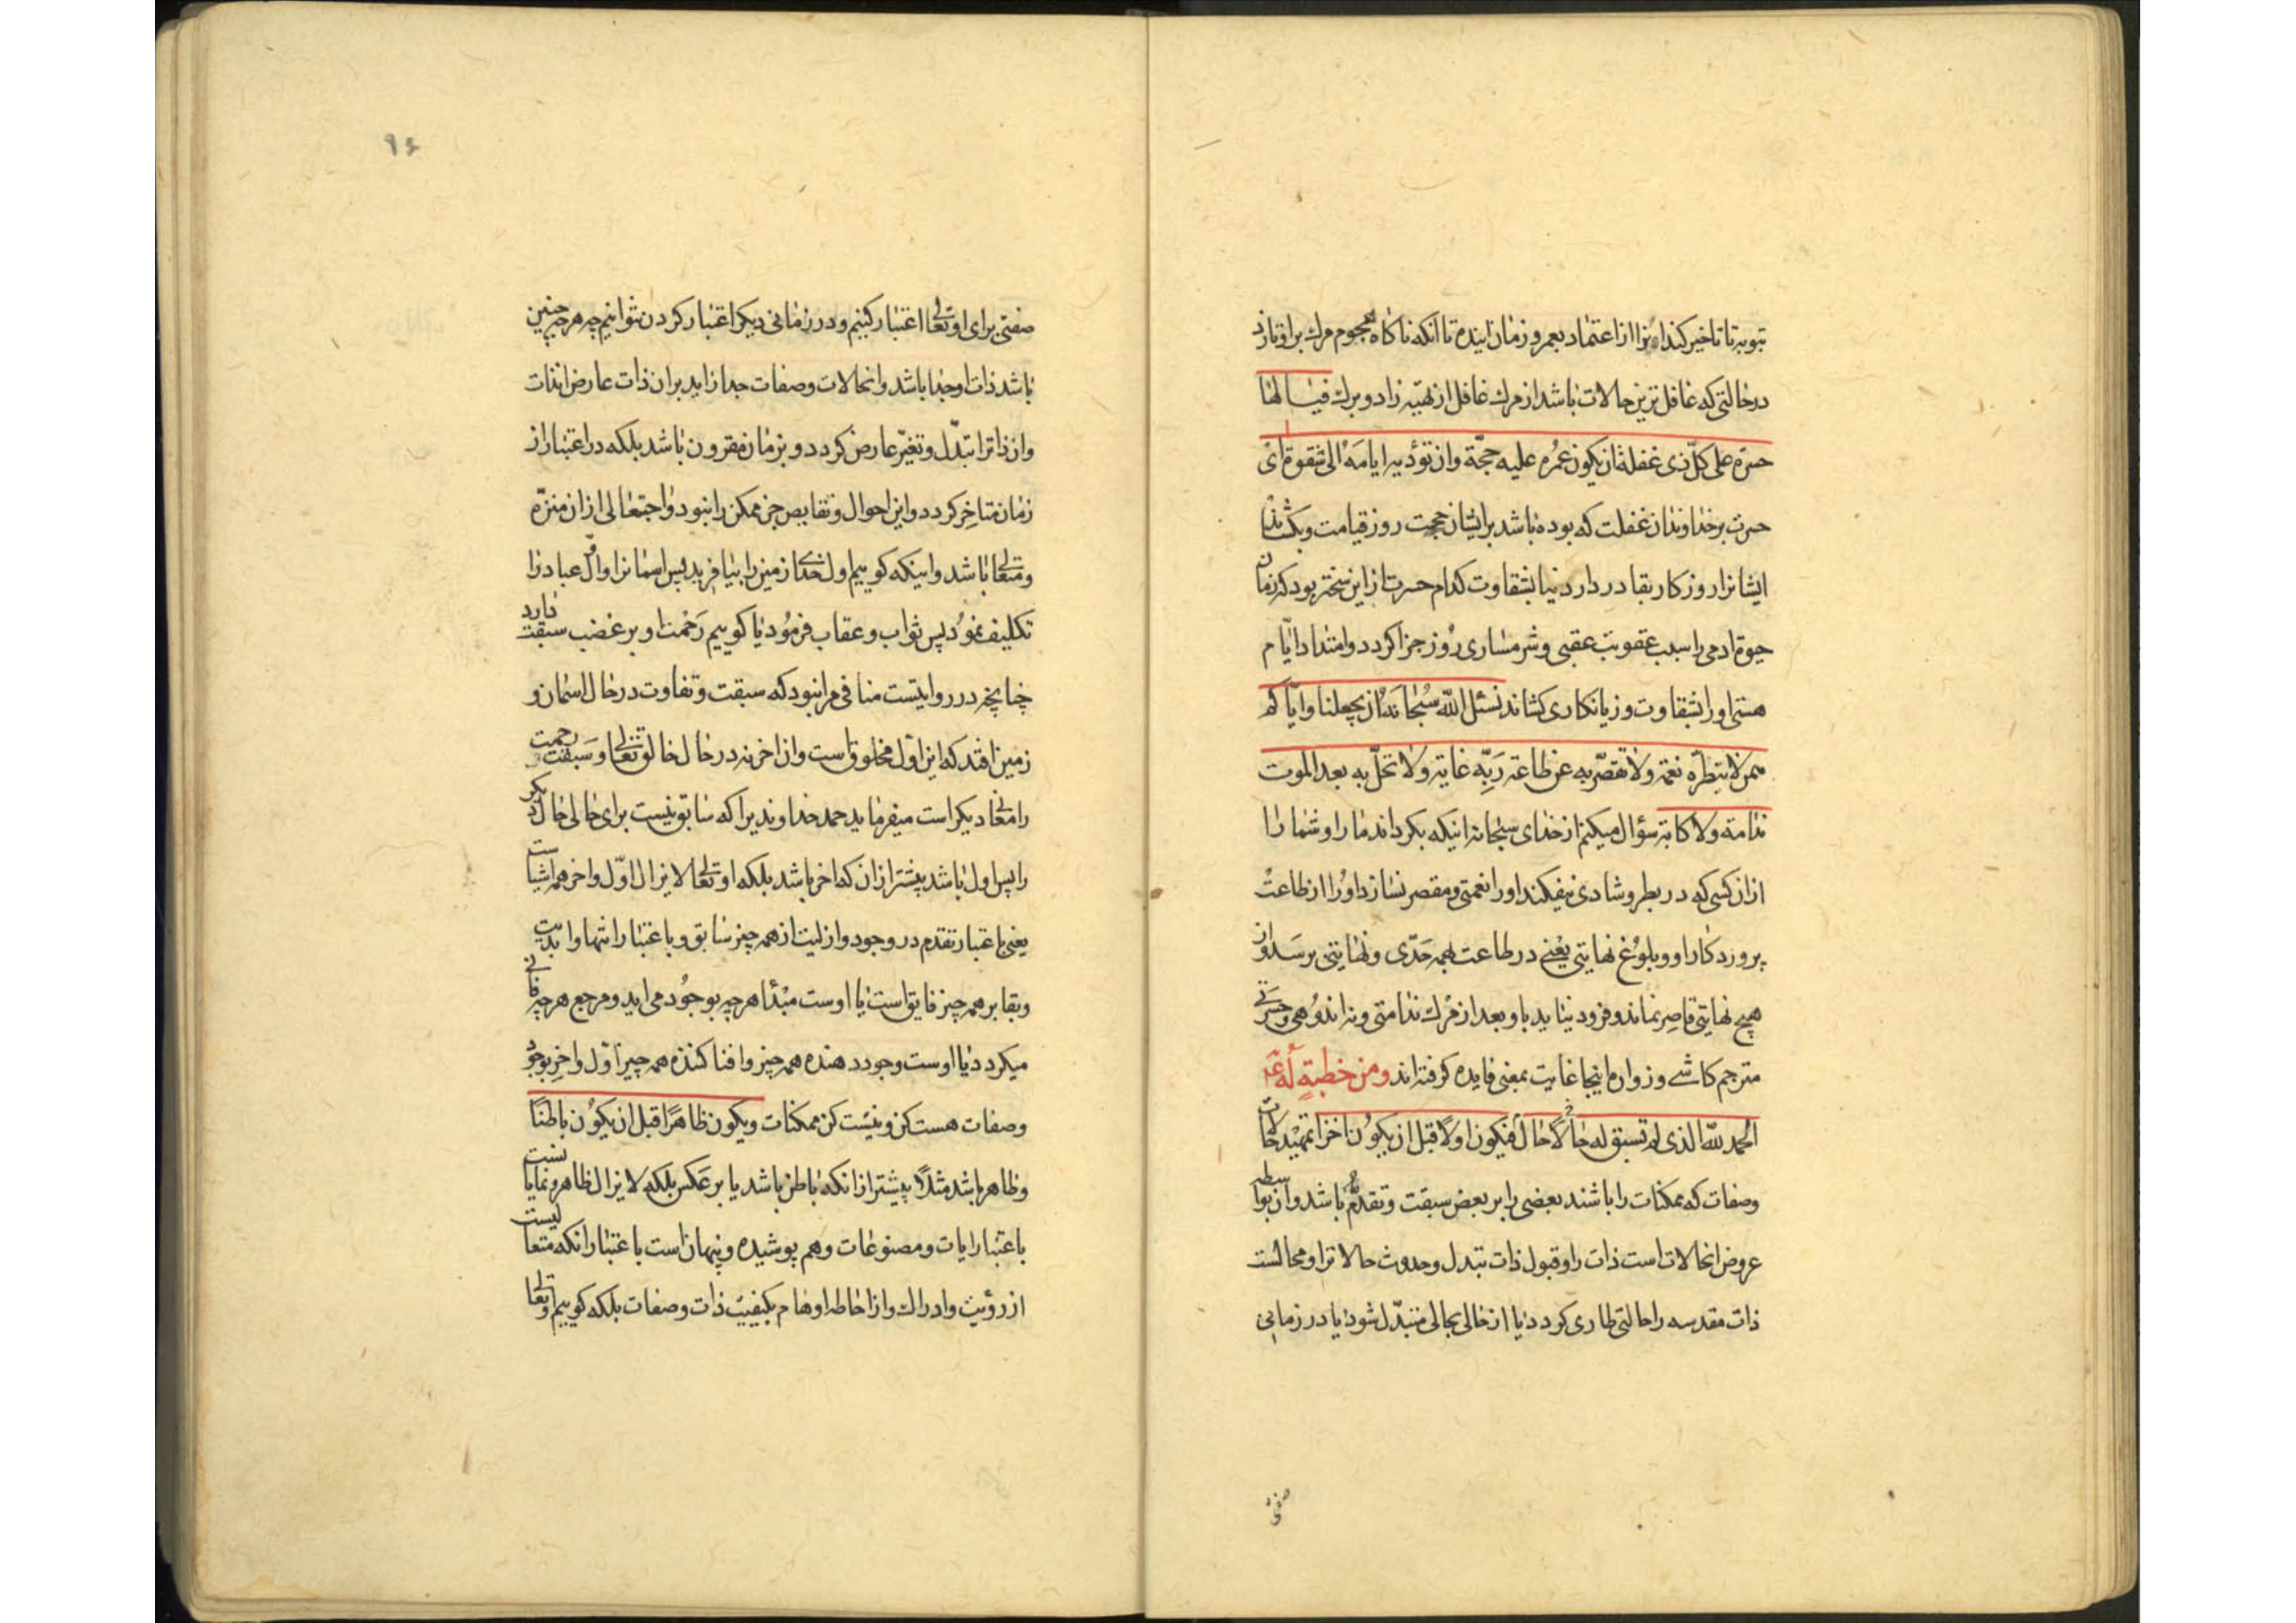 توبه تا تاخیر کند انرا از اعتماد بعمر و زمان اینده تا انکه ناکاه هجوم مرك بر او تازد
درحالتی که غافل ترین حالات باشد از مرك غافل از تهیه زاد و برك فیا لها
حسرة علی کل ذی غفلة ان یکون عمره علیه حجّة وان تؤدیه ایامه الی شقوة ای
حسرت بر خداوندان غفلت که بوده باشد برایشان حجت روز قیامت و بکشاند
ایشانرا روزکار بقا در دار دنیا بشقاوت کدام حسرت از این سختر بود که زمان
حیوة ادمی را سبب عقوبت عقبی و شرمساری روز جزا کردد و امتداد ایّام
هستی او را بشقاوت و زیانکاری کشاند نسئل اللّه سُبحانه ان یجعلنا وایّاکم
ممن لا تبطره نعمة ولا تقصّر به عن طاعة رَبِّه غایة ولا تحلّ به بعد الموت
ندامة ولا کابة سؤال میکنم از خدای سبحانه اینکه بکرداند ما را و شما را
از ان کسی که در بطر و شادی نیفکند او را نعمتی و مقصر نسازد او را از طاعت
پروردکار او و بلوغ نهایتی یعنی در طاعت بهمه حَدّی و نهایتی برسد و از
هیچ نهایتی قاصر نماند و فرود نیاید باو بعد از مرك ندامتی و نه اندوهی و حسرتی
مترجم کاشی و زواره اینجا غایت بمعنی فایده کرفته اند ومن خطبةٍ لَه عَ
الحمد للّه الذی لم تسبق له حالٌ حالا فیکون اولا قبل ان یکون اخرا تمهید حالات
وصفات که ممکنات را باشند بعضی را بر بعض سبقت و تقدم باشد وان بواسطه
عروض انحالات است ذات را و قبول ذات تبدل وحدوث حالاترا و محالست
ذات مقدسه را حالتی طاری کردد یا از حالی بحالی متبدّل شود یا در زمانی
صفتی
۹۶
صفتی برای او تعالی اعتبار کنیم و در زمانی دیکر اعتبار کردن نتوانیم چه هر چه چنین
باشد ذات او جدا باشد و انحالات وصفات جدا زاید بران ذات عارض انذات
وان ذاترا تبدّل و تغیّر عارض کردد و بزمان مقرون باشد بلکه در اعتبار از
زمان متاخِر کردد و این احوال و نقایص جز ممکن را نبود واجب تعالی از ان منزّه
و متعالی باشد و اینکه کوییم اول خدای زمین را بیافرید پس اسمانرا و اوّل عباد را
تکلیف نمود پس ثواب و عقاب فرمود یا کوییم رَحْمت او بر غضب سبقت دارد
چنانچه در روایتست منافی مر انبود که سبقت و تفاوت در حال اسمان و
زمین افتد که این اوّل مخلوق است وان اخر نه در حال خالق تعالی و سَبقت رحمت
را معانی دیکر است میفرماید حمد خداوندیرا که سابق نیست برای حالی حال دیکر
را پس اول باشد پیشتر از ان که اخر باشد بلکه او تعالی لا یزال اوّل و اخر همه اشیاست
یعنی باعتبار تقدم در وجود و ازلیت از همه چیز سابق و باعتبار انتها و ابدیت
و بقا بر همه چیز فایق است یا اوست مبْدأ هر چه بوجود می اید و مرجع هر چه فانی
میکردد یا اوست وجود دهنده همه چیز و افنا کننده همه چیز اوّل و اخِر بوجود
وصفات هست کن و نیست کن ممکنات ویکون ظاهرًا قبل ان یکوُن باطنًا
و ظاهر باشد مثلاً پیشتر از انکه باطن باشد یا بر عکس بلکه لا یزال ظاهر و نمایانست
باعتبار ایات و مصنوعات و هم پوشیده و پنهان است باعتبار انکه متعالیست
از رؤیت و ادراك و از احاطه اوهام بکیفیت ذات وصفات بلکه کوییم او تعالی